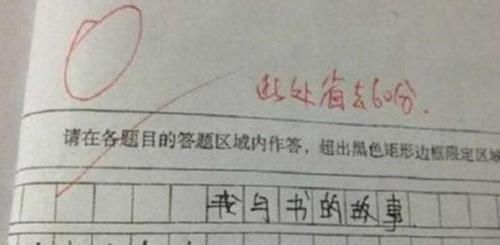 此处省去60分.
请在各题目的答题区域内作答，超出黑色矩形边框限定区域
我与书的故事